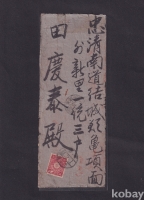 忠清南道結城郡龜項面
外新里一統三戶
田慶泰殿
KOBAY